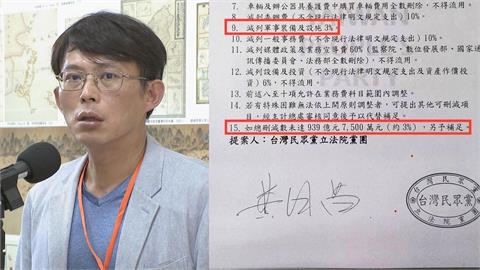 7. 車輛及辦公器具養護費中購買車輛費用全數刪除,不得流用。
8. 減列委辦費(不含現行法律明文規定支出)10%。
9. 減列軍事裝備及設施 3%
10. 減列一般事務費(不含現行法律明文規定支出)10%。
11. 減列媒體政策及業務宣導費 60%(監察院、數位發展部、國家通
訊傳播委員會、法務部全數刪除),不得流用。
12. 減列設備及投資(不含現行法律明文規定支出及資產作價投
資)6%,不得流用。
13. 前述八至十項允許在業務費科目範圍內調整。
14. 若有特殊困難無法依上開原則調整者,可提出其他可刪減項
目,經主計總處審核同意後予以代替補足。
15. 如總刪減數未達 939 億元 7,500 萬元(約 3%),另予補足。
提案人:台灣民眾黨立法院黨團
黃國昌
台灣民眾黨
立法院黨團